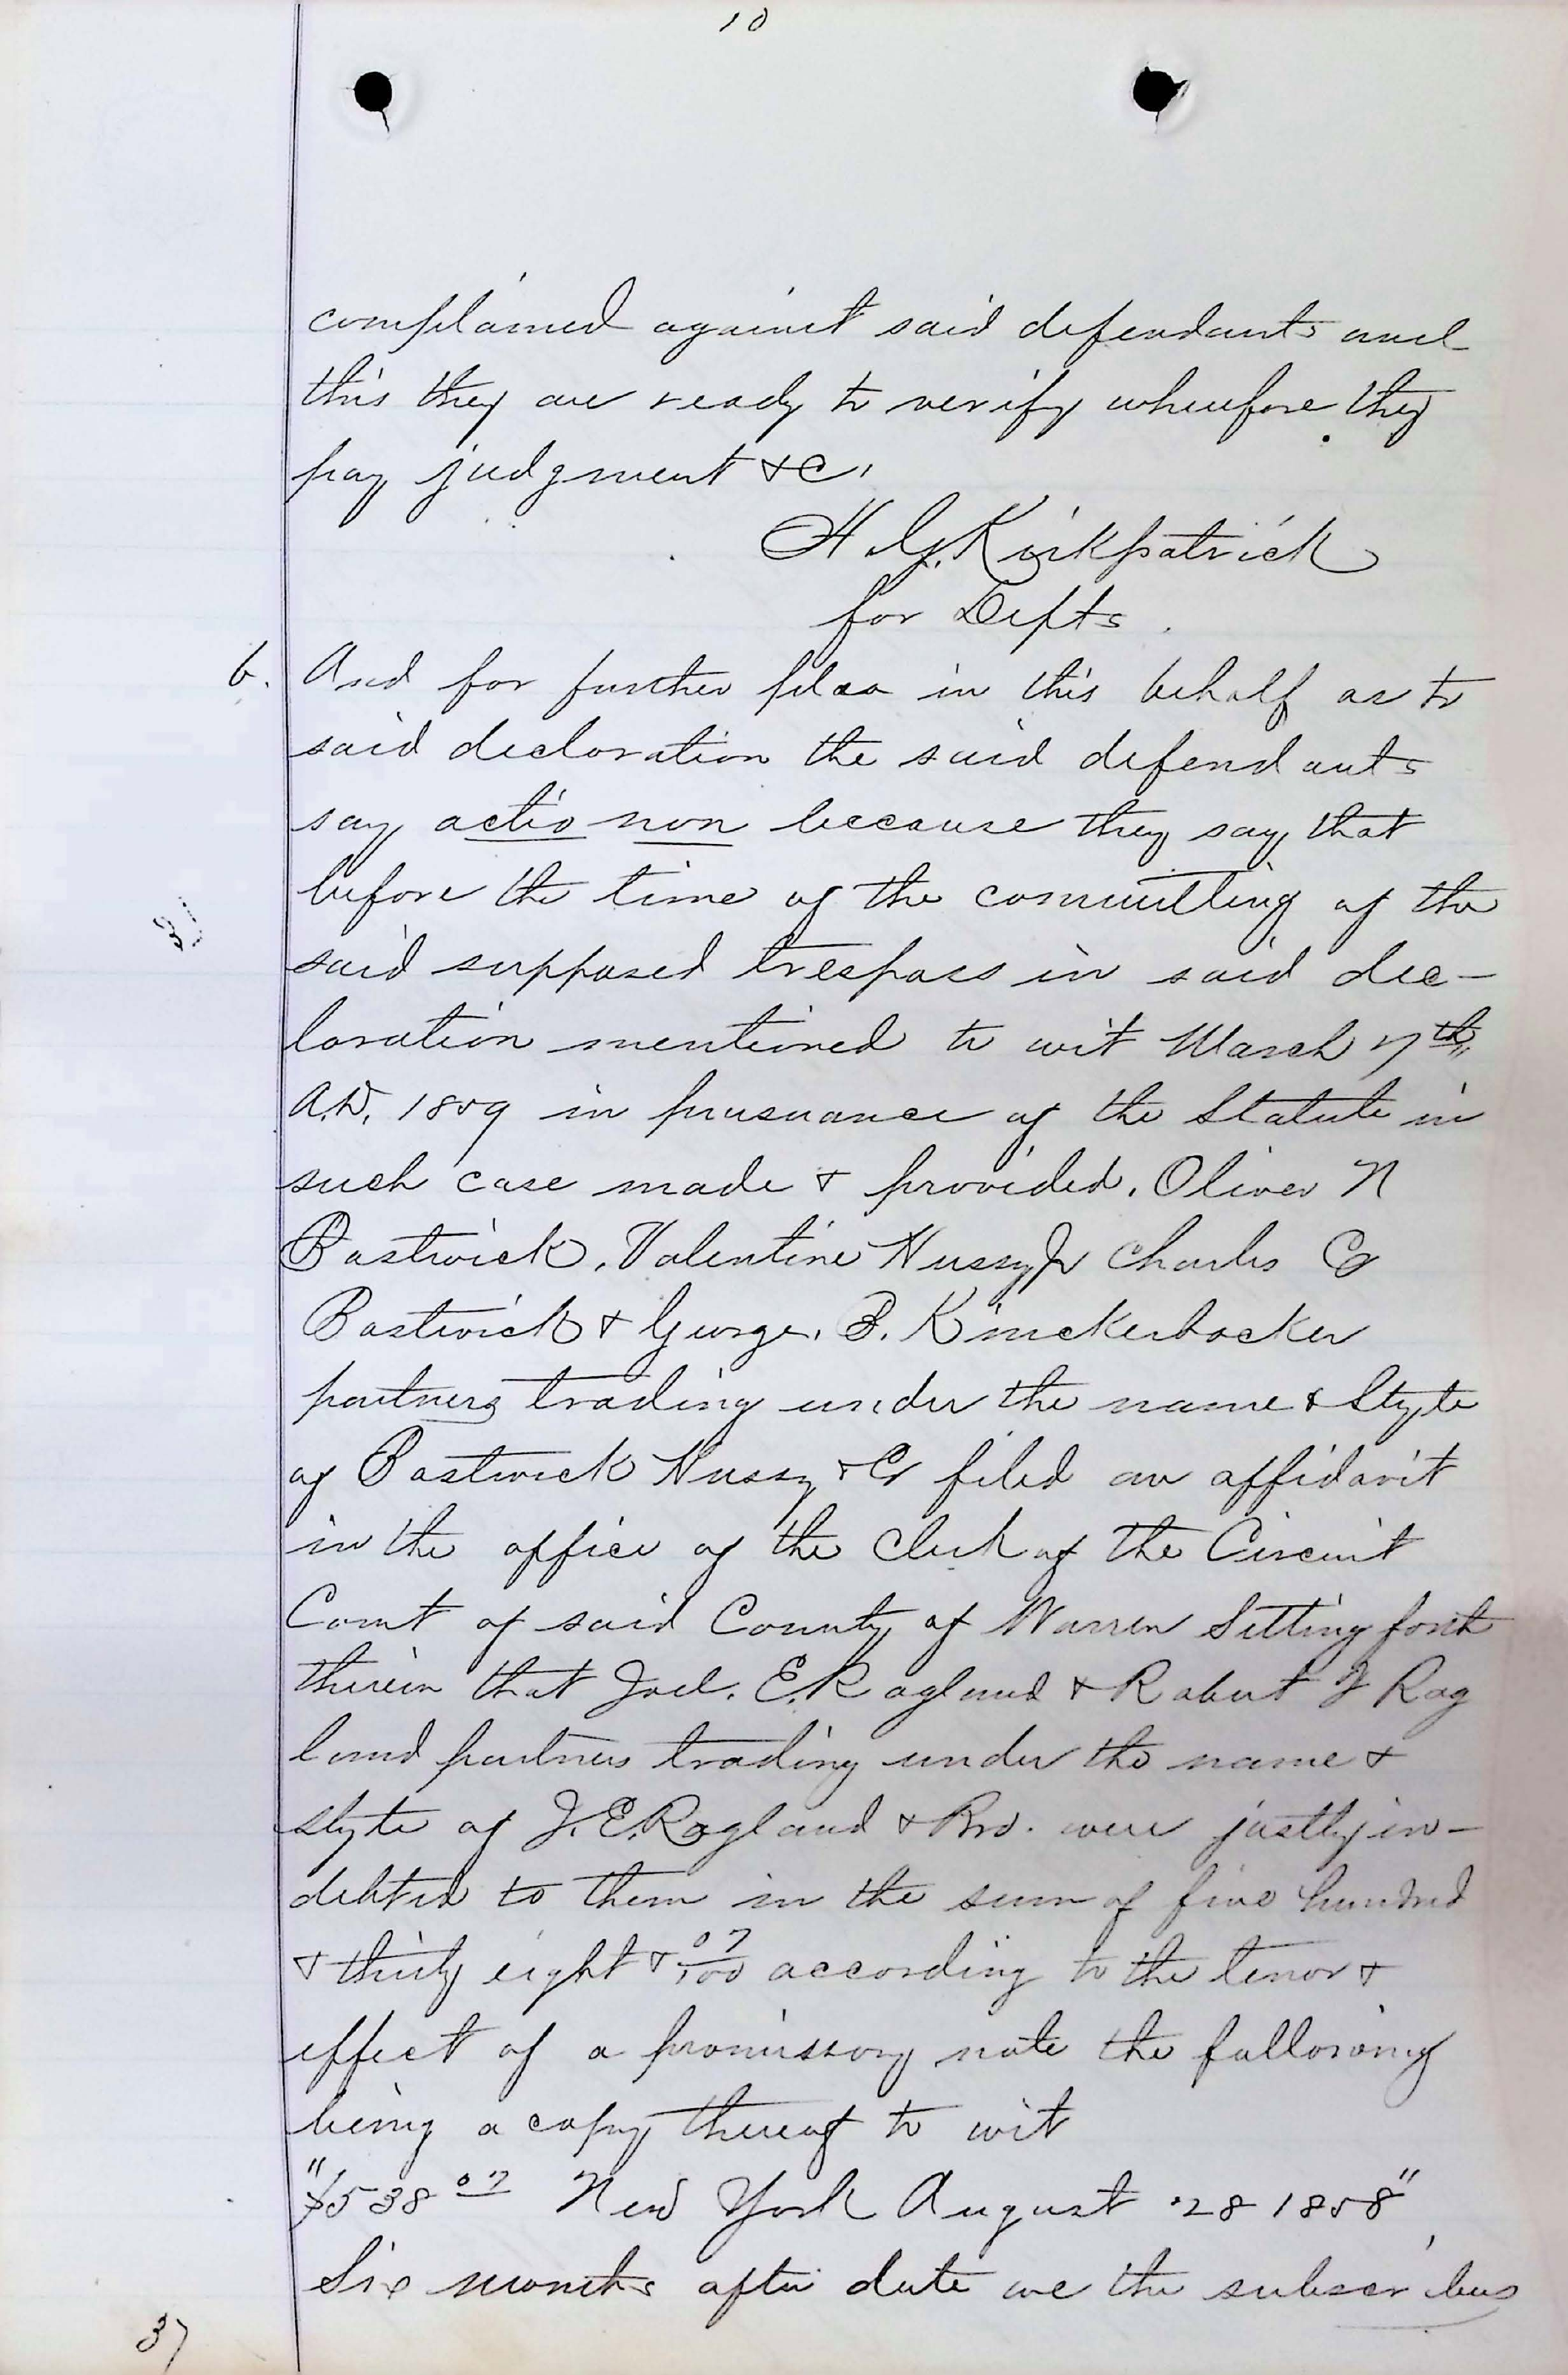 10
complained against said defendants and
this they are ready to verify wherefore they
pray judgment &c.
H. G. Kirkpatrick
for Defts.
6. And for further plea in this behalf as to
said declaration the said defendants
say actio non because they say that
before the time of the committing of the
said supposed trespass in said dec-
laration mentioned to wit March 7th
A.D. 1859 in pursuance of the Statute in
such case made & provided. Oliver N
Bostwick, Valentine Hussy Jr Charles Co
Bostwick & George. B. Knickerbocker
partners trading under the name & Style
of Bostwick Hussy & Co filed an affidavit
in the office of the Clerk of the Circuit
Court of said County of Warren Setting forth
therein that Joel. E. Ragland & Robert J Rag
land partners trading under the name &
style of J. E. Ragland & Bro. were justly in-
debted to them in the sum of five hundred
& thirty eight & 07/100 according to the tenor &
effect of a promissory note the following
being a copy thereof to wit
"$538 07 New York August 28 1858"
Six months after date we the subscribers
37